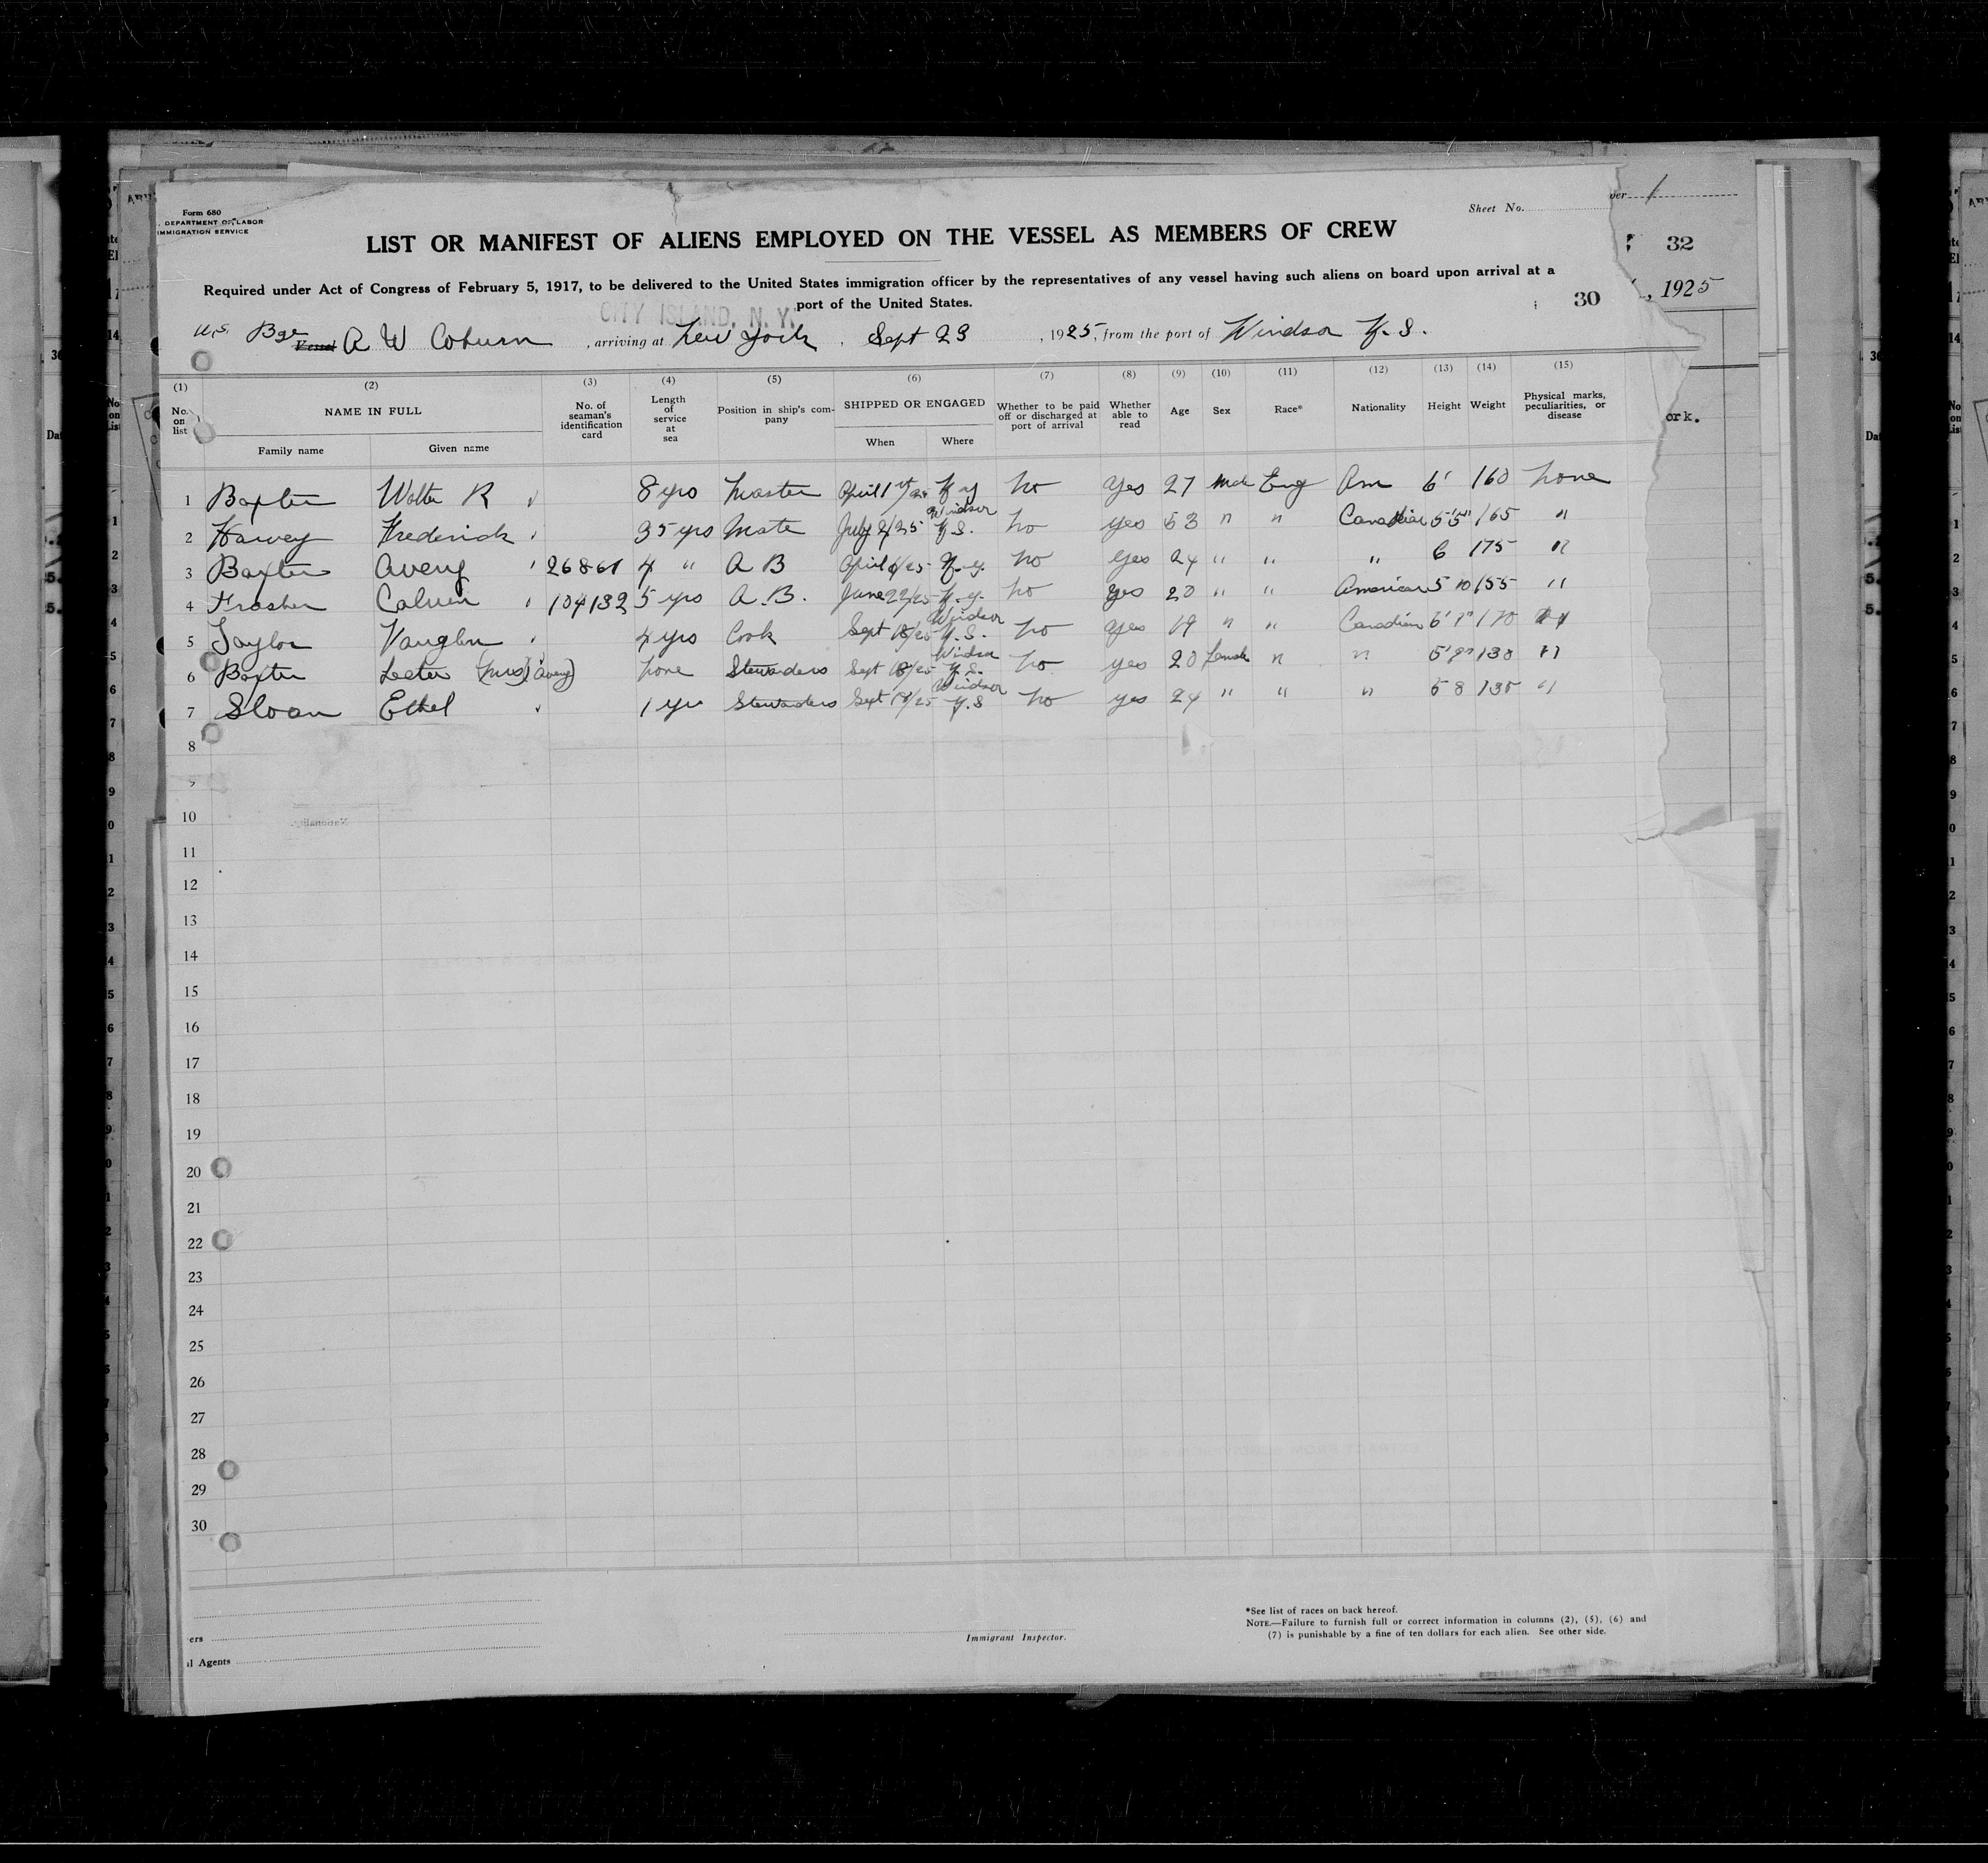 Form 680
DEPARTMENT OF LABOR
IMMIGRATION SERVICE
Sheet No.
LIST OR MANIFEST OF ALIENS EMPLOYED ON THE VESSEL AS MEMBERS OF CREW
32
Required under Act of Congress of February 5, 1917, to be delivered to the United States immigration officer by the representatives of any vessel having such aliens on board upon arrival at a
port of the United States.
30
, 1925
CITY ISLAND, N. Y.
U.S. Bge Vessel A W Coburn, arriving at New York, Sept 23, 1925, from the port of Windsor N.S.
(1) (2) (3) (4) (5) (6) (7) (8) (9) (10) (11) (12) (13) (14) (15)
No. on list NAME IN FULL No. of seaman's identification card Length of service at sea Position in ship's company SHIPPED OR ENGAGED Whether to be paid off or discharged at port of arrival Whether able to read Age Sex Race* Nationality Height Weight Physical marks, peculiarities, or disease
Family name Given name When Where
ork.
1 Baxter Walter R 8 yrs Master April 1st N Y No Yes 27 Male Eng Am 6' 160 None
2 Harvey Frederick 35 yrs Mate July 2/25 Windsor N.S. No yes 53 " " Canadian 5'5" 165 "
3 Baxter Avery 26861 4 " A B April N.Y. No yes 24 " " " 6 175 "
4 Frasher Calvin 104132 5 yrs A.B. June 22/25 N.Y. No yes 20 " " American 5 10 155 "
5 Taylor Vaughn 4 yrs Cook Sept 18/25 Windsor N.S. No yes 19 " " Canadian 6'1" 170
6 Baxter Lester (Mrs) (Avery) None Stewardess Sept 18/25 Windsor N.S. No yes 20 Female " " 5'8" 130 "
7 Sloan Ethel 1 yr Stewardess Sept 18/25 Windsor N.S No yes 24 " " " 5 8 135 "
8
9
10
11
12
13
14
15
16
17
18
19
20
21
22
23
24
25
26
27
28
29
30
*See list of races on back hereof.
NOTE.—Failure to furnish full or correct information in columns (2), (5), (6) and
(7) is punishable by a fine of ten dollars for each alien. See other side.
Immigrant Inspector.
ers
l Agents